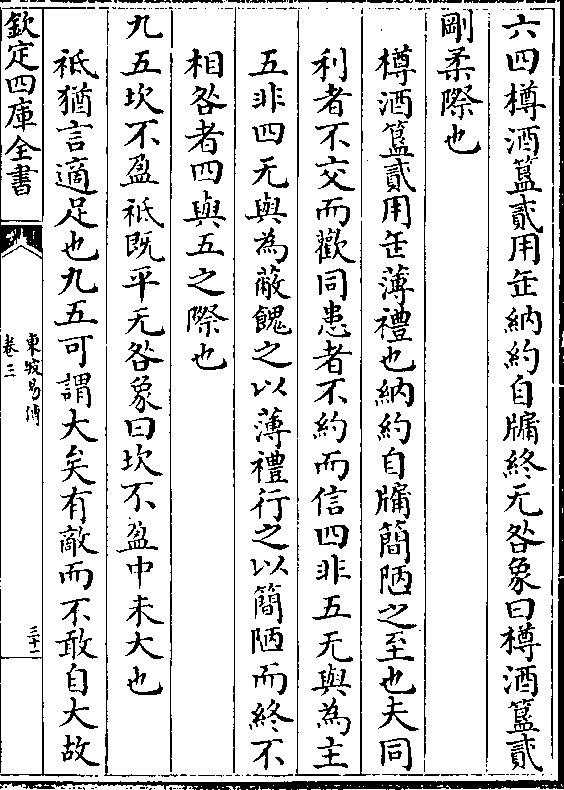 六四樽酒簋貳用缶納約自牖終无咎象曰樽酒簋貳
剛柔際也
樽酒簋貳用缶薄禮也納約自牖簡陋之至也夫同
利者不交而歡同患者不約而信四非五无與為主
五非四无與為蔽餽之以薄禮行之以簡陋而終不
相咎者四與五之際也
九五坎不盈祗既平无咎象曰坎不盈中未大也
祗猶言適足也九五可謂大矣有敵而不敢自大故
欽定四庫全書
東坡易傳
卷三
三十一